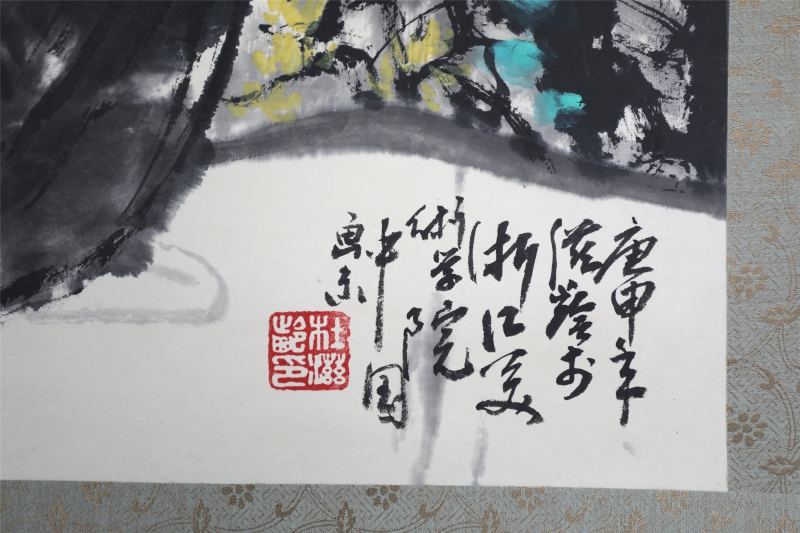 庚申年
滋龄于
浙江美
術学院
中国
画系
杜滋齡印